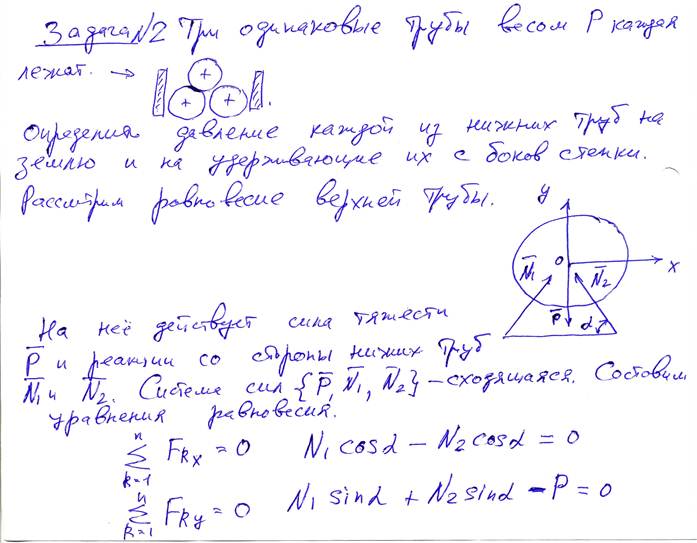 Задача N2 Три одинаковые трубы весом P каждая
лежат. →
Определить давление каждой из нижних труб на
землю и на удерживающие их с боков стенки.
Рассмотрим равновесие верхней трубы.
y
N̄₁ O N̄₂ x
P̄ α
На неё действует сила тяжести
P̄ и реакции со стороны нижних труб
N̄₁ и N̄₂. Система сил {P̄, N̄₁, N̄₂} – сходящаяся. Составим
уравнения равновесия.
n
∑ Fkx = 0 N₁ cosα – N₂ cosα = 0
k=1
n
∑ Fky = 0 N₁ sinα + N₂ sinα – P = 0
k=1